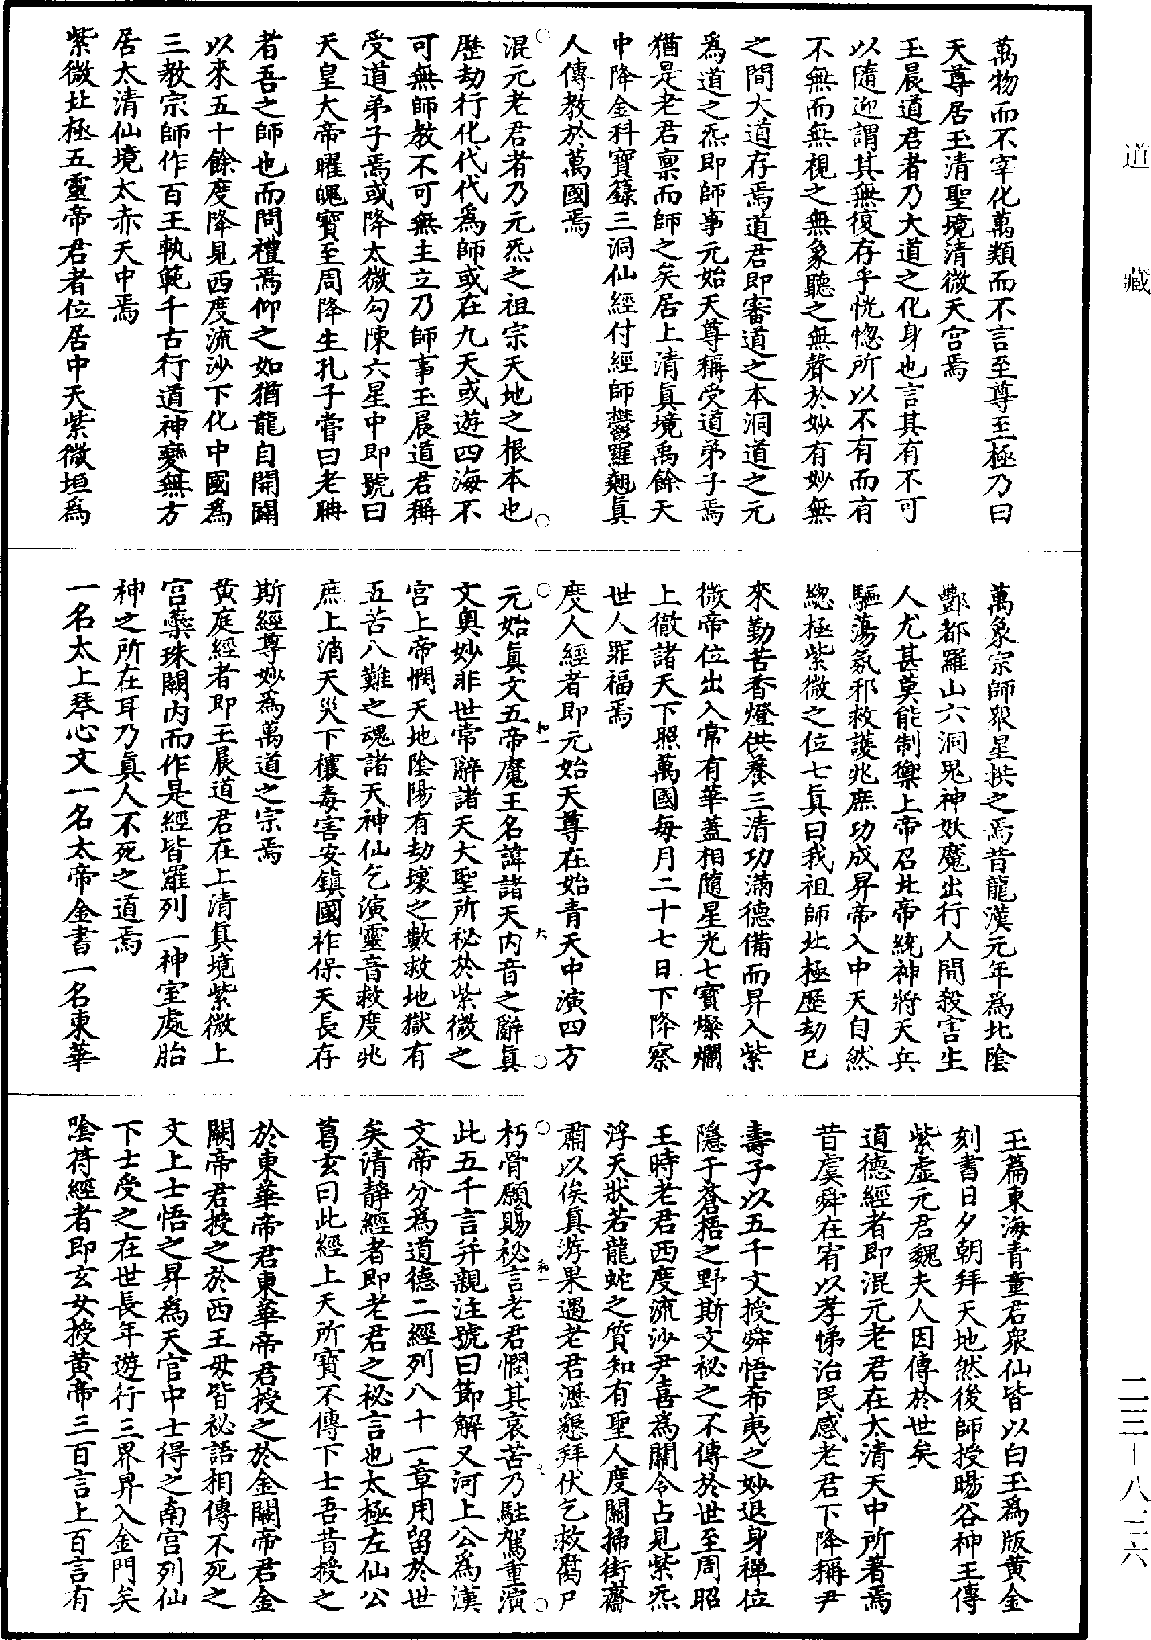 道藏
二三—八三六
萬物而不宰化萬類而不言至尊至極乃曰
天尊居玉清聖境清微天宮焉
玉晨道君者乃大道之化身也言其有不可
以隨迎謂其無復存乎恍惚所以不有而有
不無而無視之無象聽之無聲於妙有妙無
之間大道存焉道君即審道之本洞道之元
為道之炁即師事元始天尊稱受道弟子焉
猶是老君禀而師之矣居上清真境禹餘天
中降金科寶籙三洞仙經付經師鬱羅翹真
人傳教於萬國焉
混元老君者乃元炁之祖宗天地之根本也
歷劫行化代代為師或在九天或遊四海不
可無師教不可無主立乃師事玉晨道君稱
受道弟子焉或降太微勾陳六星中即號曰
天皇大帝曜魄寶至周降生孔子嘗曰老聃
者吾之師也而問禮焉仰之如猶龍自開闢
以來五十餘度降見西度流沙下化中國為
三教宗師作百王軌範千古行道神變無方
居太清仙境太赤天中焉
紫微北極五靈帝君者位居中天紫微垣為
萬象宗師眾星拱之焉昔龍漢元年為北陰
酆都羅山六洞鬼神妖魔出行人間殺害生
人尤甚莫能制禦上帝召北帝統神將天兵
驅蕩氛邪救護兆庶功成昇帝入中天自然
總極紫微之位七真曰我祖師北極歷劫已
來勤苦香燈供養三清功滿德備而昇入紫
微帝位出入常有華蓋相隨星光七寶燦爛
上徹諸天下照萬國每月二十七日下降察
世人罪福焉
度人經者即元始天尊在始青天中演四方
元始真文五帝魔王名諱諸天內音之辭真
文奧妙非世常辭諸天大聖所祕於紫微之
宮上帝憫天地陰陽有劫壞之數救地獄有
五苦八難之魂諸天神仙乞演靈音救度兆
庶上消天災下禳毒害安鎮國祚保天長存
斯經尊妙為萬道之宗焉
黃庭經者即玉晨道君在上清真境紫微上
宮蘂珠闕內而作是經皆羅列一神室處胎
神之所在耳乃真人不死之道焉
一名太上琴心文一名太帝金書一名東華
玉篇東海青童君眾仙皆以白玉為版黃金
刻書日夕朝拜天地然後師授暘谷神王傳
紫虛元君魏夫人因傳於世矣
道德經者即混元老君在太清天中所著焉
昔虞舜在宥以孝悌治民感老君下降稱尹
壽子以五千文授舜悟希夷之妙退身禪位
隱于蒼梧之野斯文祕之不傳於世至周昭
王時老君西度流沙尹喜為關令占見紫炁
浮天狀若龍蛇之質知有聖人度關掃街齋
肅以俟真游果遇老君瀝懇拜伏乞救腐尸
朽骨願賜祕言老君憫其哀苦乃駐駕重演
此五千言并親注號曰節解又河上公為漢
文帝分為道德二經列八十一章用留於世
矣清靜經者即老君之秘言也太極左仙公
葛玄曰此經上天所寶不傳下士吾昔授之
於東華帝君東華帝君授之於金闕帝君金
闕帝君授之於西王母皆祕語相傳不死之
文上士悟之昇為天官中士得之南宮列仙
下士受之在世長年遊行三界昇入金門矣
陰符經者即玄女授黃帝三百言上百言有